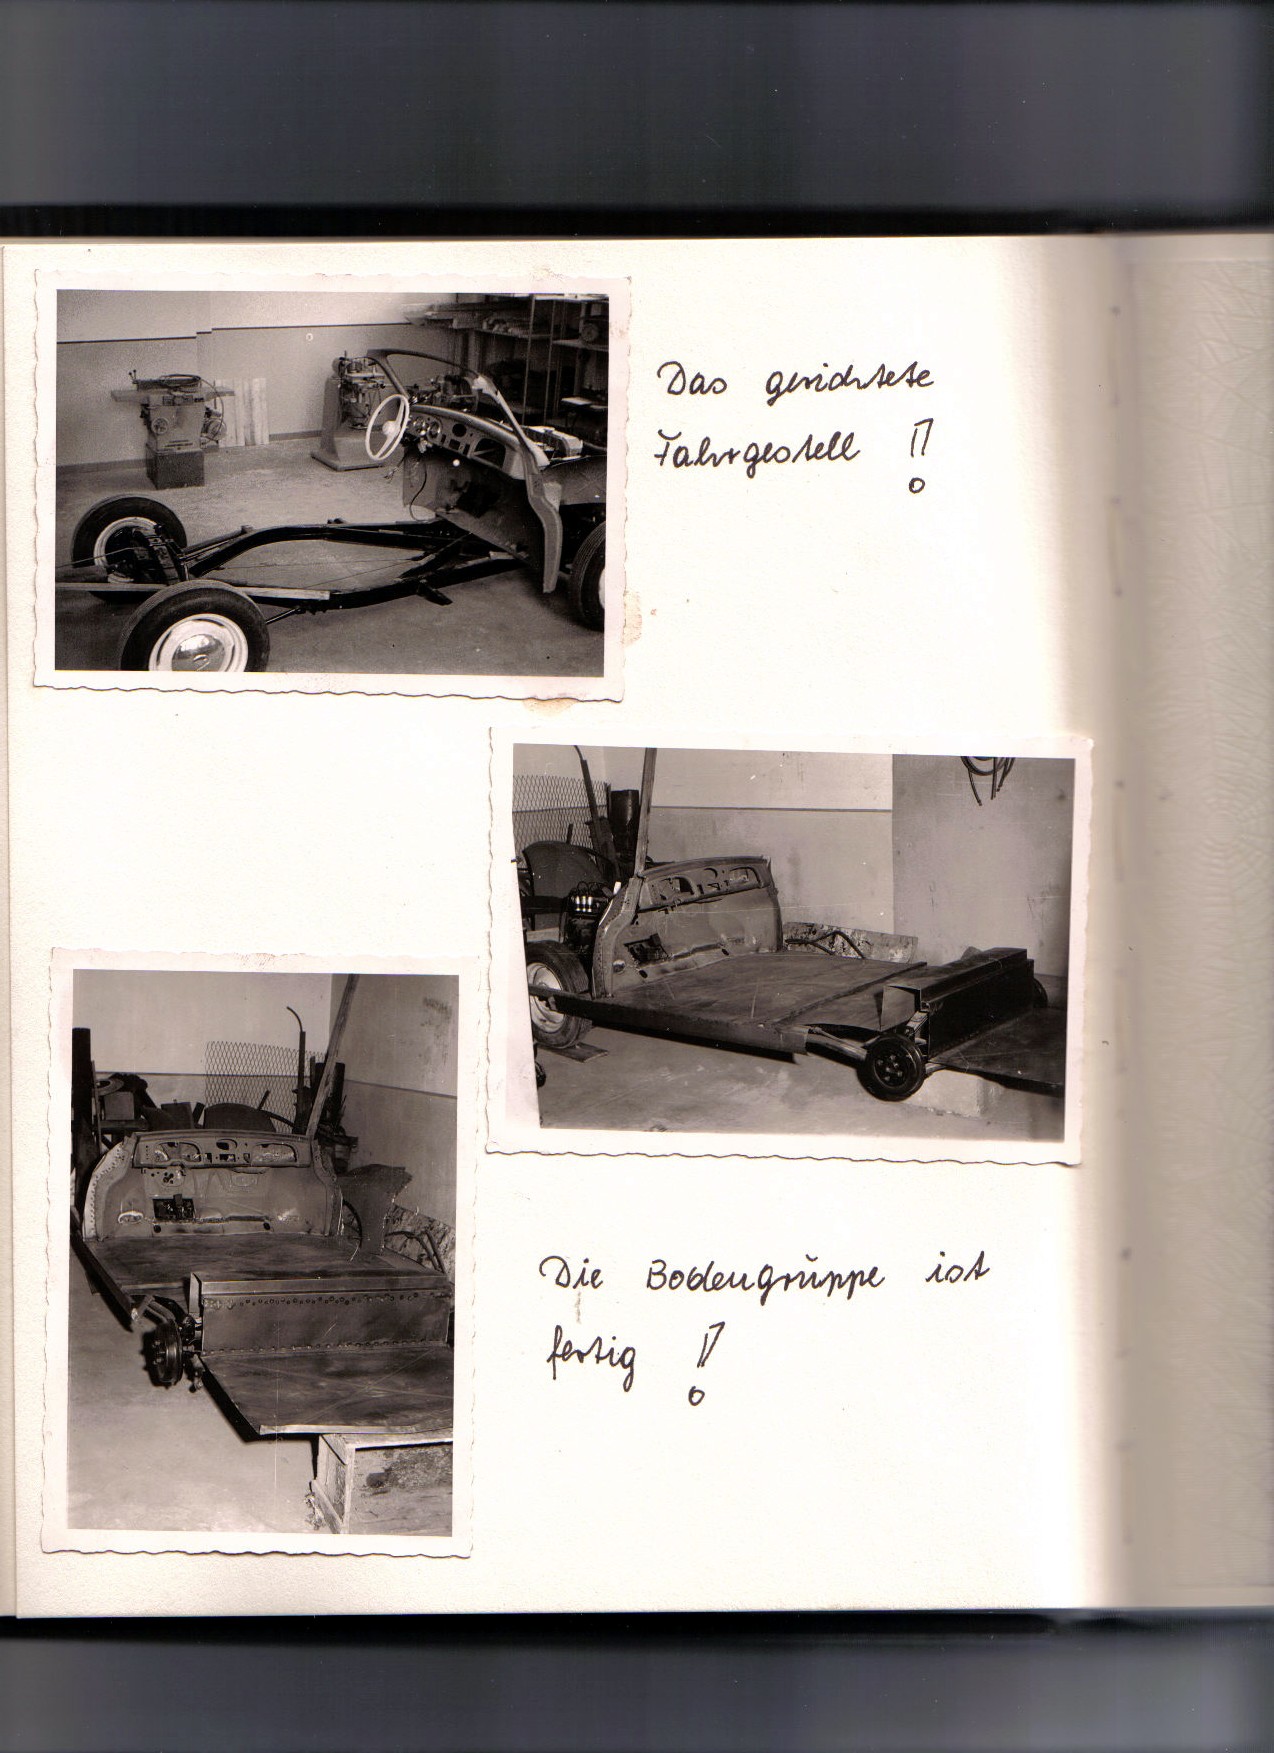 Das gerichtete
Fahrgestell !
Die Bodengruppe ist
fertig !